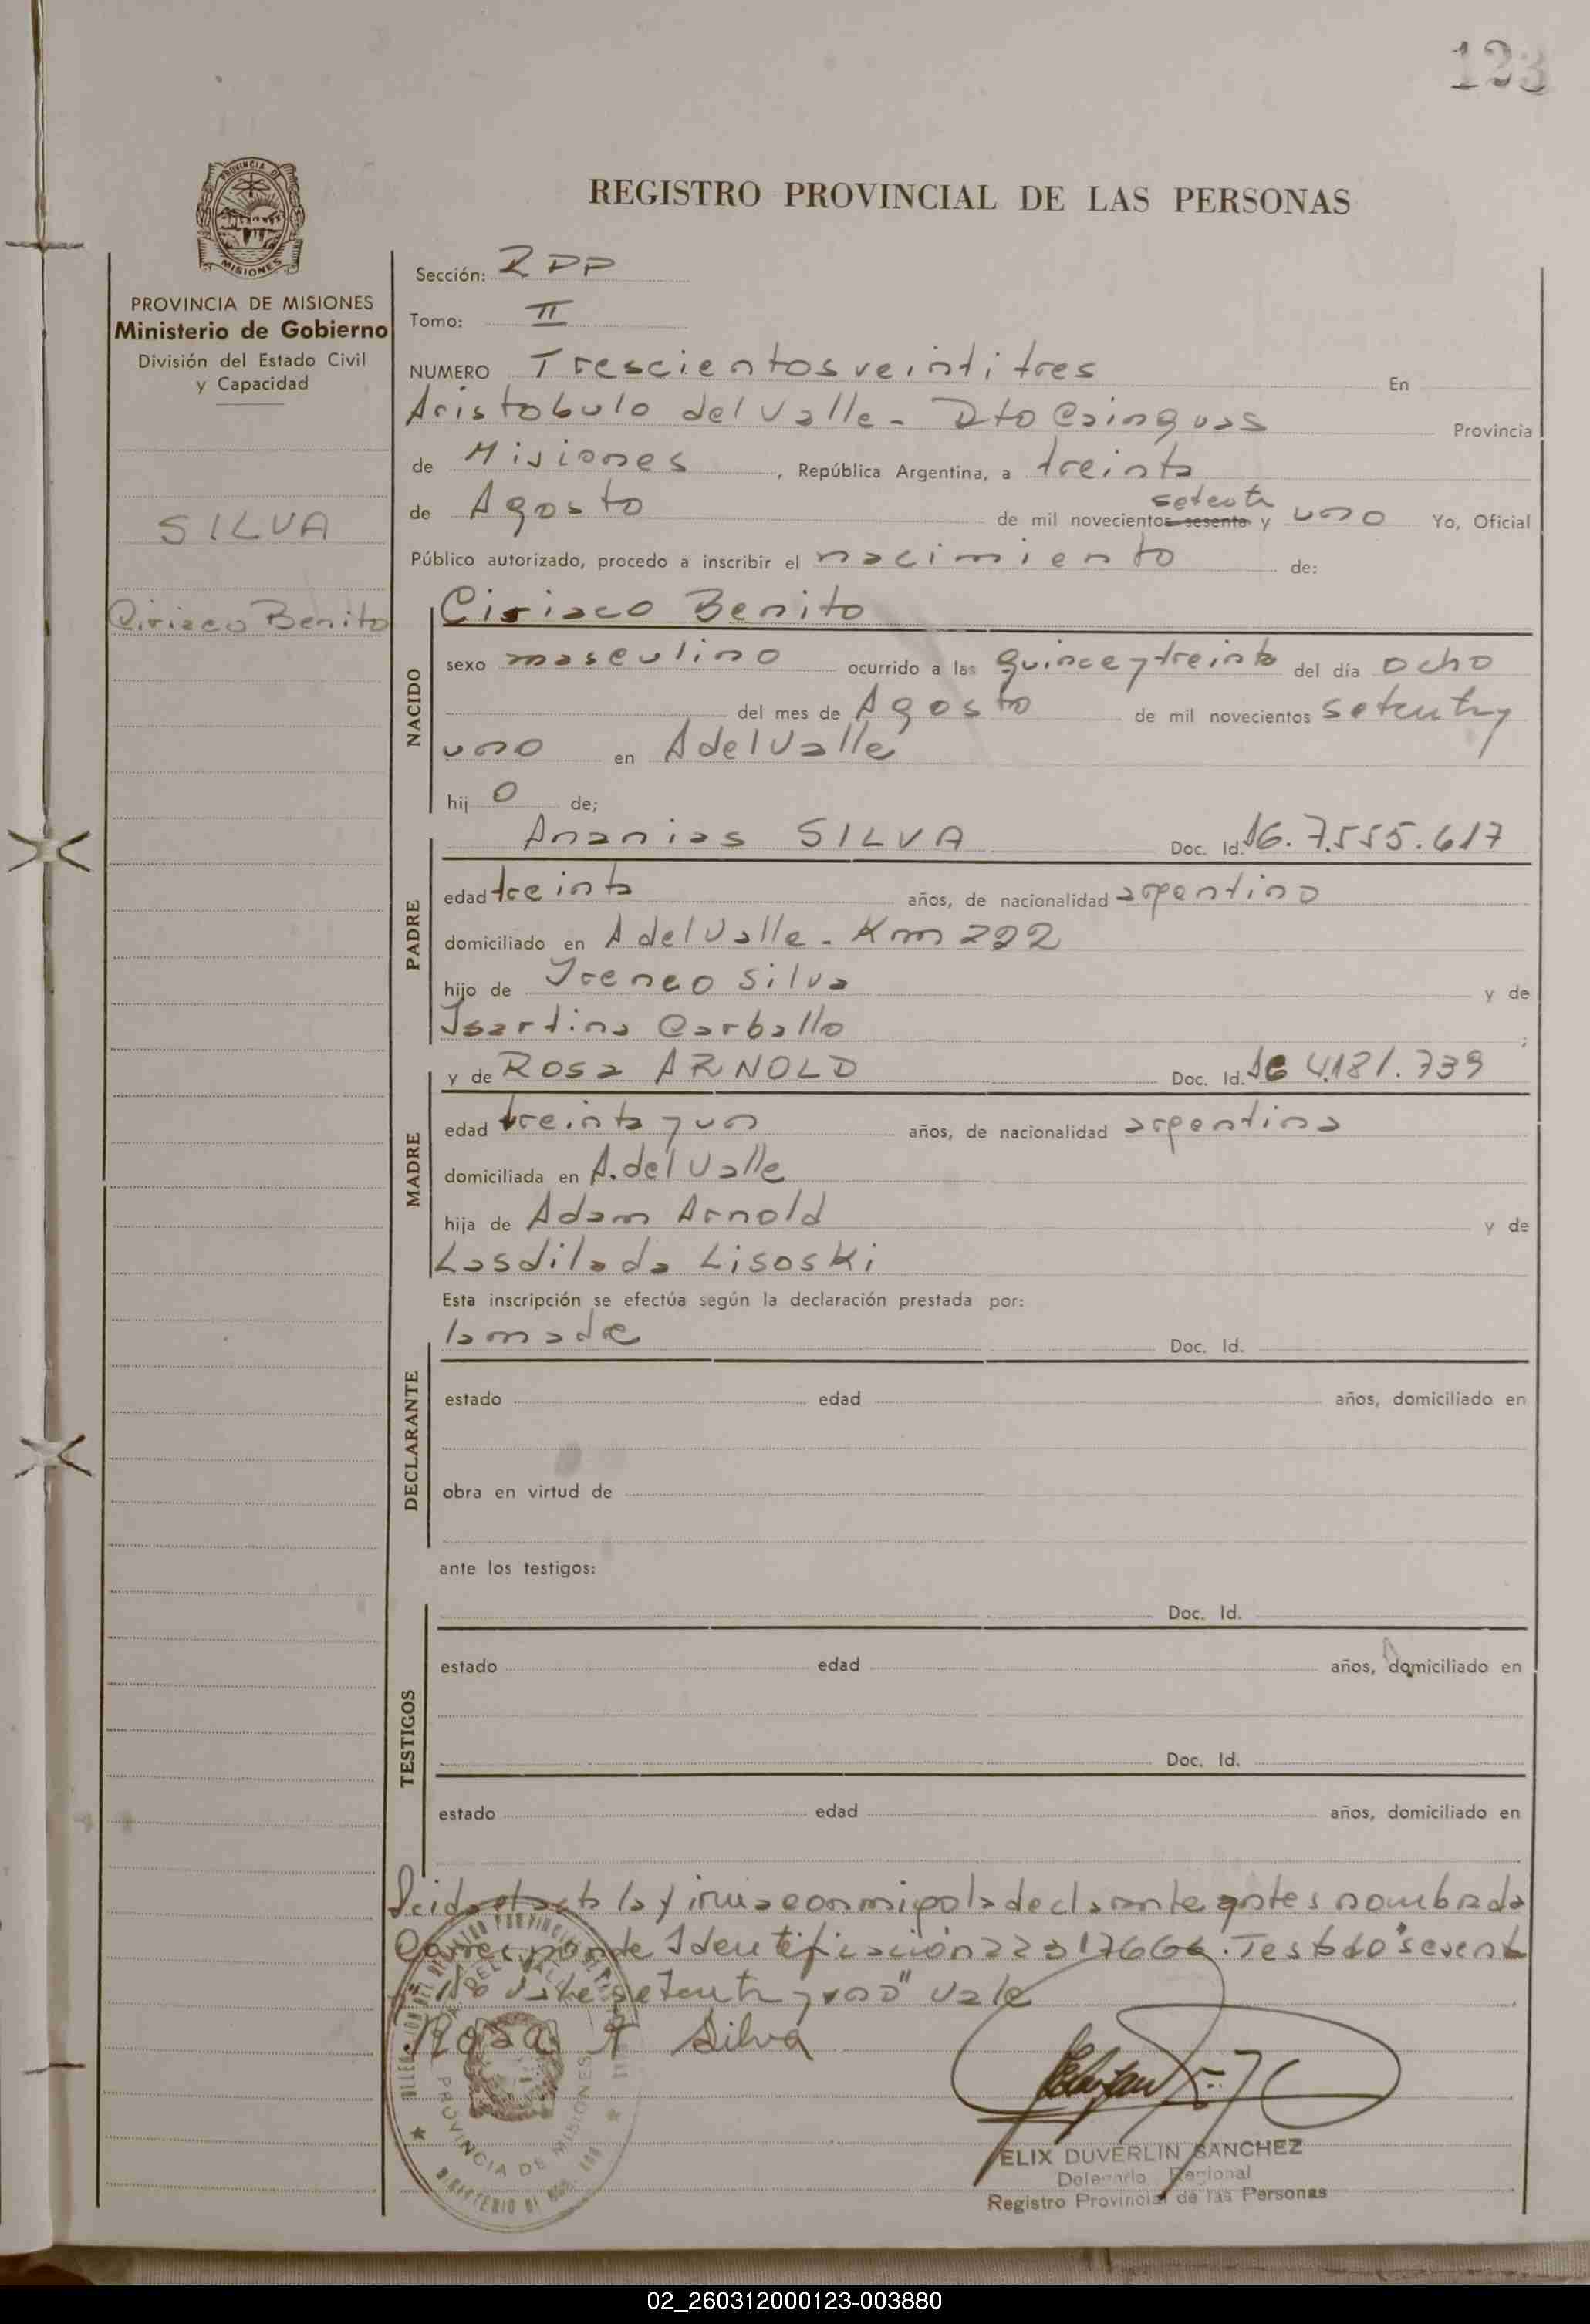 123
REGISTRO PROVINCIAL DE LAS PERSONAS
PROVINCIA DE MISIONES
Ministerio de Gobierno
División del Estado Civil
y Capacidad
SILVA
Ciriaco Benito
Sección: RPP
Tomo: II
NUMERO Trescientos veintitres En
Aristobulo del Valle - Dto Cainguas Provincia
de Misiones, República Argentina, a treinta
de Agosto de mil novecientos sesenta setenta y uno Yo, Oficial
Público autorizado, procedo a inscribir el nacimiento de:
NACIDO
Ciriaco Benito
sexo masculino ocurrido a las quince y treinta del día ocho
del mes de Agosto de mil novecientos setenta y
uno en A del Valle
hijo de;
PADRE
Ananias SILVA Doc. Id. 7.555.617
edad treinta años, de nacionalidad argentino
domiciliado en A del Valle - Km 222
hijo de Ireneo Silva y de
Isartina Carballo
MADRE
y de Rosa ARNOLD Doc. Id. 4.181.739
edad treinta y un años, de nacionalidad argentina
domiciliada en A. del Valle
hija de Adam Arnold y de
Lasdilada Lisoski
Esta inscripción se efectúa según la declaración prestada por:
DECLARANTE
la madre Doc. Id.
estado edad años, domiciliado en
obra en virtud de
ante los testigos:
TESTIGOS
Doc. Id.
estado edad años, domiciliado en
Doc. Id.
estado edad años, domiciliado en
Leida el acta la firma conmigo la declarante antes nombrada
Corresponde Identificación 22317666. Testado "sesenta"
vale setenta y uno" vale
Rosa A Silva
PROVINCIA DE MISIONES
ELIX DUVERLIN SANCHEZ
Delegado Regional
Registro Provincial de las Personas
02_260312000123-003880